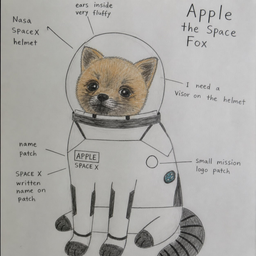 ears inside
very fluffy
Apple
the Space
Fox
Nasa
SpaceX
helmet
I need a
visor on the helmet
name
patch
APPLE
SPACE X
small mission
logo patch
SPACE X
written
name on
patch